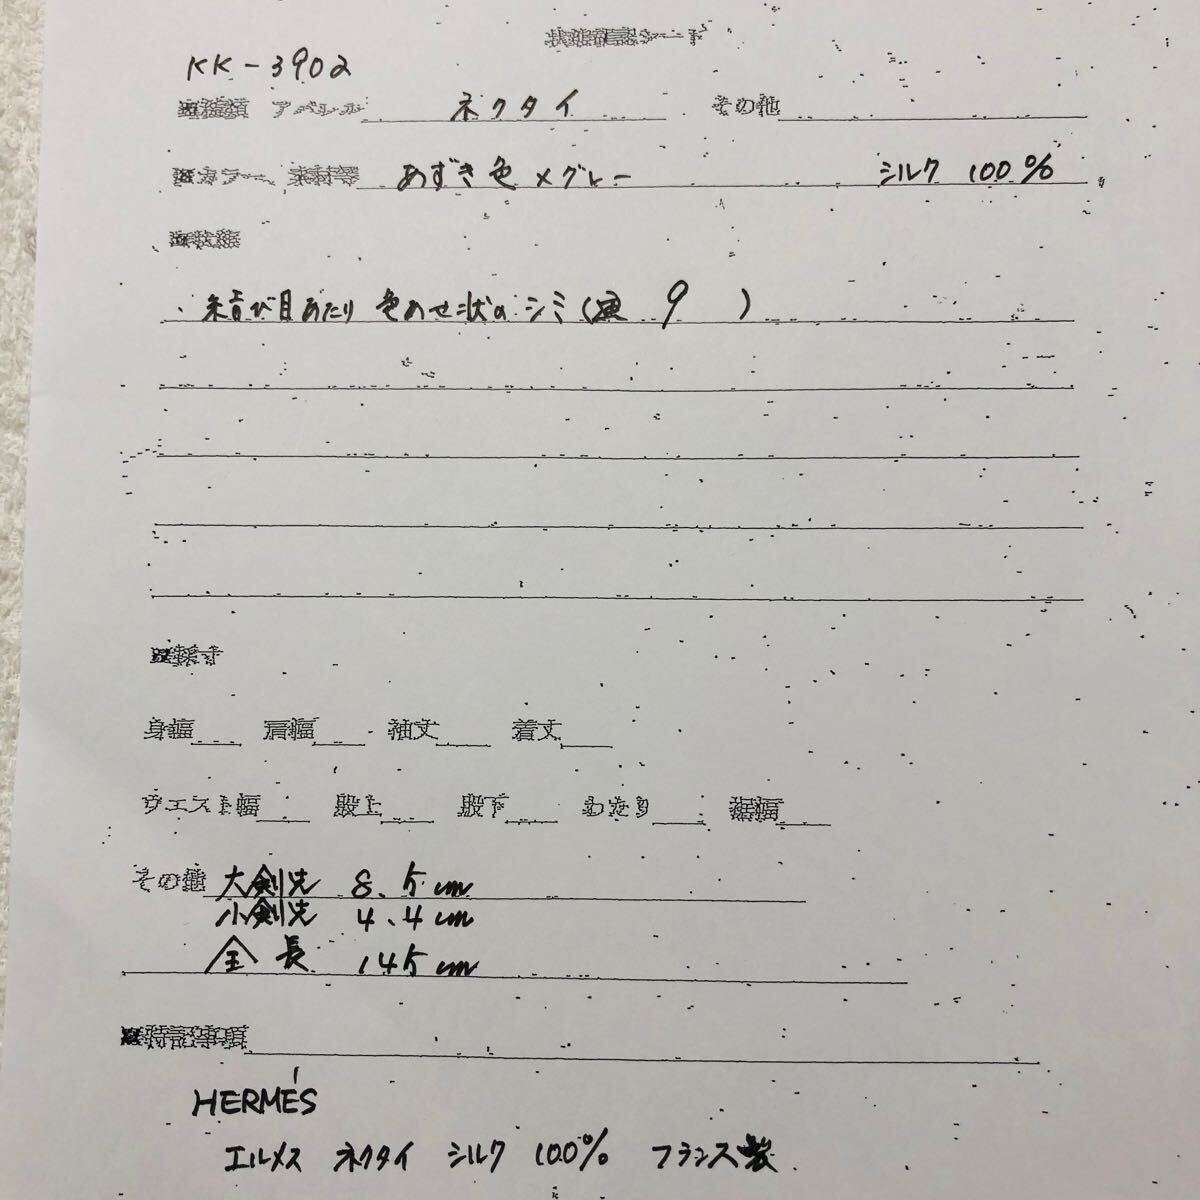 状態確認シート
KK-3902
■種類 アパレル ネクタイ その他
■カラー、素材等 あずき色×グレー シルク 100%
■状態
・結び目あたり 色あせ状のシミ( 9 )
■採寸
身幅 肩幅 袖丈 着丈
ウエスト幅 股上 股下 わたり 裾幅
その他 大剣先 8.5cm
小剣先 4.4cm
全長 145cm
■特記事項
HERMÉS
エルメス ネクタイ シルク 100% フランス製